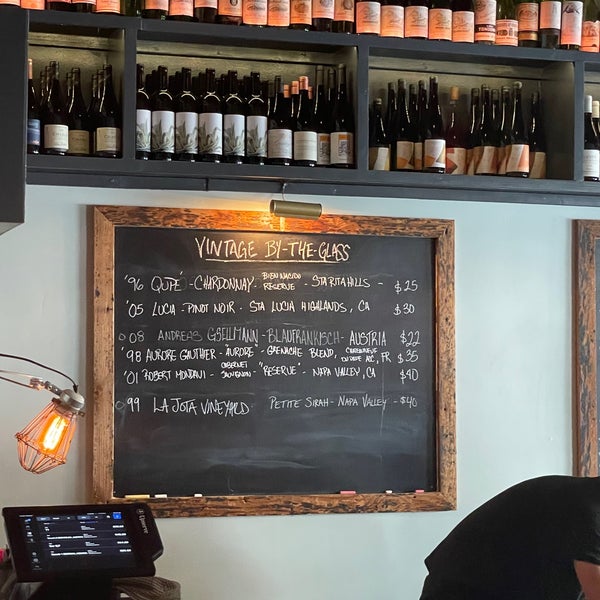 VINTAGE BY-THE-GLASS
'96 QUPÉ - CHARDONNAY - BIEN NACIDO RESERVE - STA RITA HILLS - $25
'05 LUCIA - PINOT NOIR - STA LUCIA HIGHLANDS, CA $30
'08 ANDREAS GSELLMANN - BLAUFRANKISCH - AUSTRIA $22
'98 AURORE GAUTHIER - "AURORE" - GRENACHE BLEND, AOC, FR $35
'01 ROBERT MONDAVI - CABERNET SAUVIGNON - "RESERVE" - NAPA VALLEY, CA $40
'99 LA JOTA VINEYARD - PETITE SIRAH - NAPA VALLEY - $40